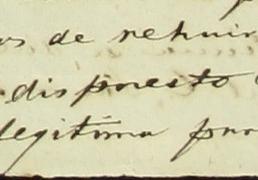 os de rehuir
dispuesto
legitima pur